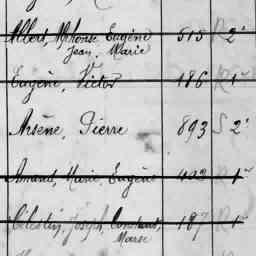 Albert, Alphonse Eugène 515 R 2e
Jean, Marie
Eugène, Victor 186 R 1er
Arsène, Pierre 893 S 2e
Amand, Marie, Eugène 492 R 1er
Célestin, Joseph, Constant, 187 R 1er
Marse